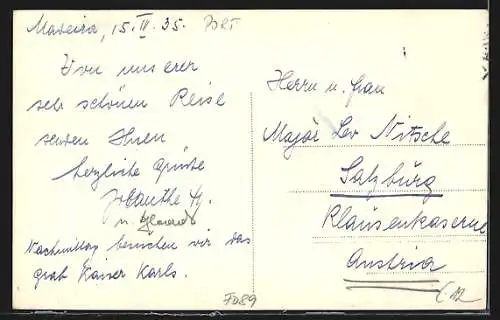 Madeira, 15. IV. 35.
Von unserer
sehr schönen Reise
senden Ihnen
herzliche Grüße
Jolanthe
u.
Nachmittag besuchen wir das
Grab Kaiser Karls.
Herrn u. Frau
Major Leo Nitsche
Salzburg
Klausenkaserne
Austria
FD89